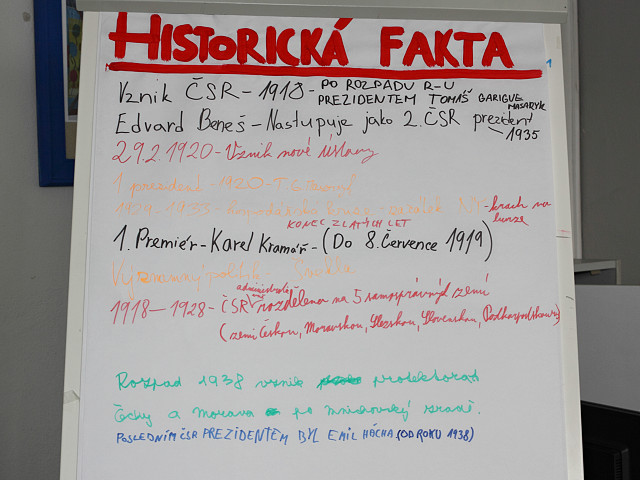 HISTORICKÁ FAKTA
Vznik ČSR - 1918 - PO ROZPADU R-U
PREZIDENTEM TOMÁŠ GARIGUE MASARYK
Edvard Beneš - Nastupuje jako 2. ČSR prezident
1935
29.2.1920 - Vznik nové ústavy
1 prezident - 1920 - T. G.
- krach na burze
KONEC ZLATÝCH LET
1. Premiér - Karel Kramář - (Do 8. Července 1919)
Významný politik -
1918 - 1928 - ČSR administrativně rozdělena na 5 samosprávných zemí
(zemi Českou, Moravskou, Slezskou, Slovenskou, Podkarpatskou)
Rozpad 1938 vznik protektorat
Čechy a morava po mnichovský zradě.
POSLEDNÍM ČSR PREZIDENTEM BYL EMIL HÁCHA (OD ROKU 1938)